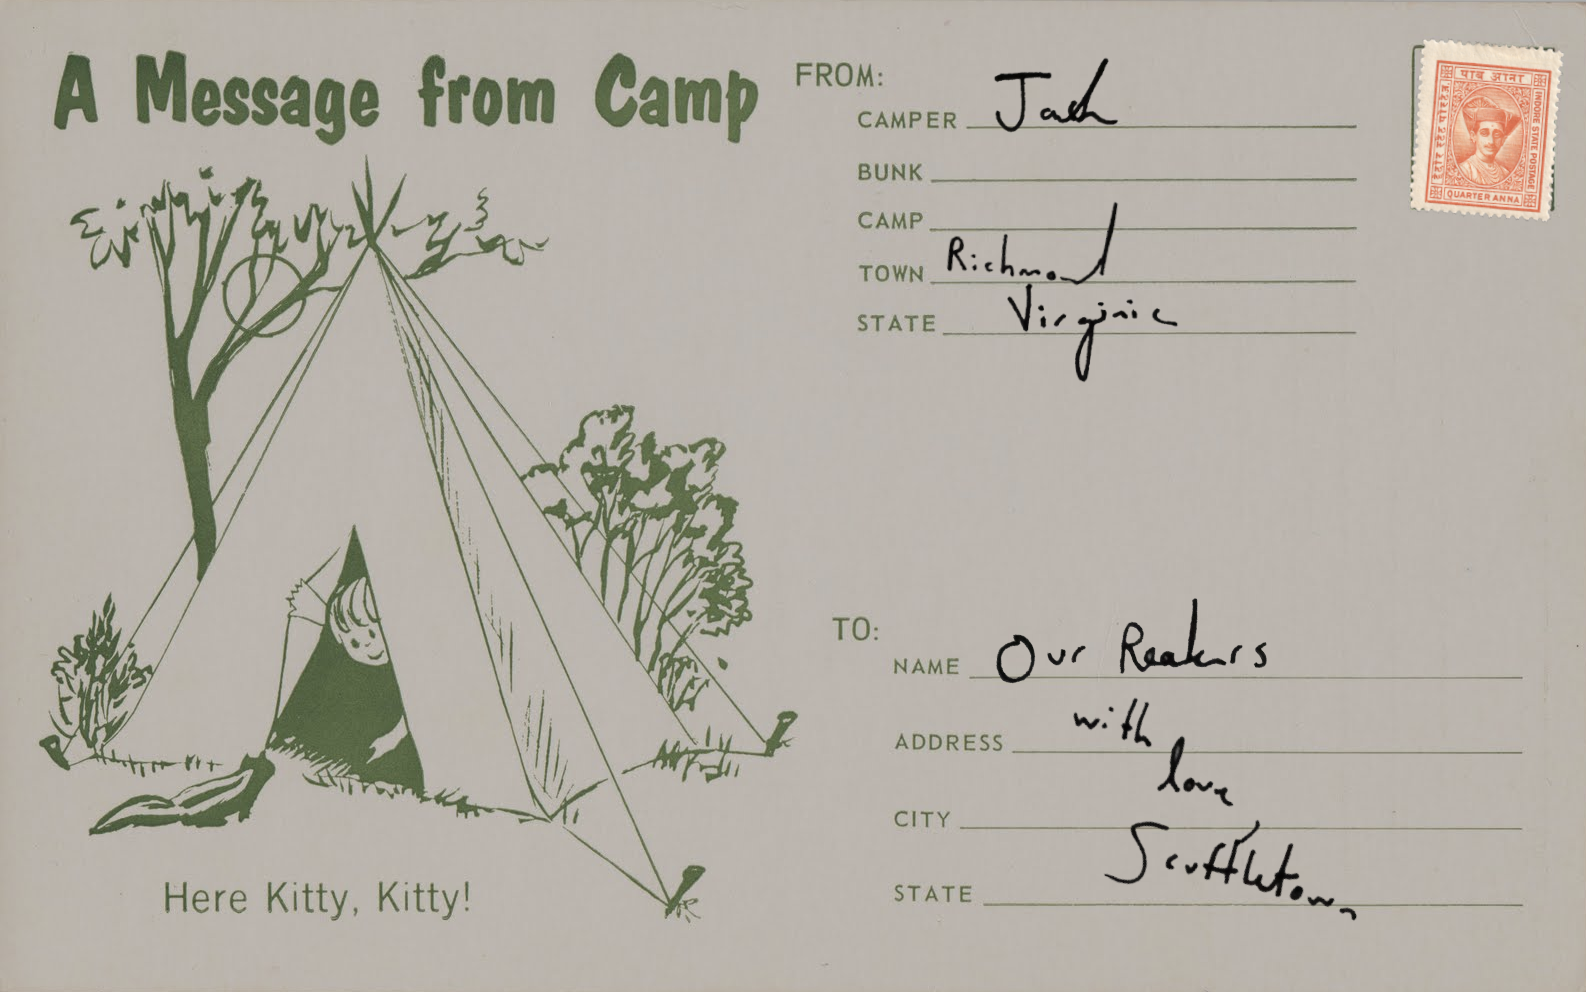 A Message from Camp
FROM:
CAMPER Jack
BUNK
CAMP
TOWN Richmond
STATE Virginia
पाव आना
INDORE STATE POSTAGE
QUARTER ANNA
TO:
NAME Our Readers
ADDRESS with
love,
CITY
STATE Scuffletown
Here Kitty, Kitty!